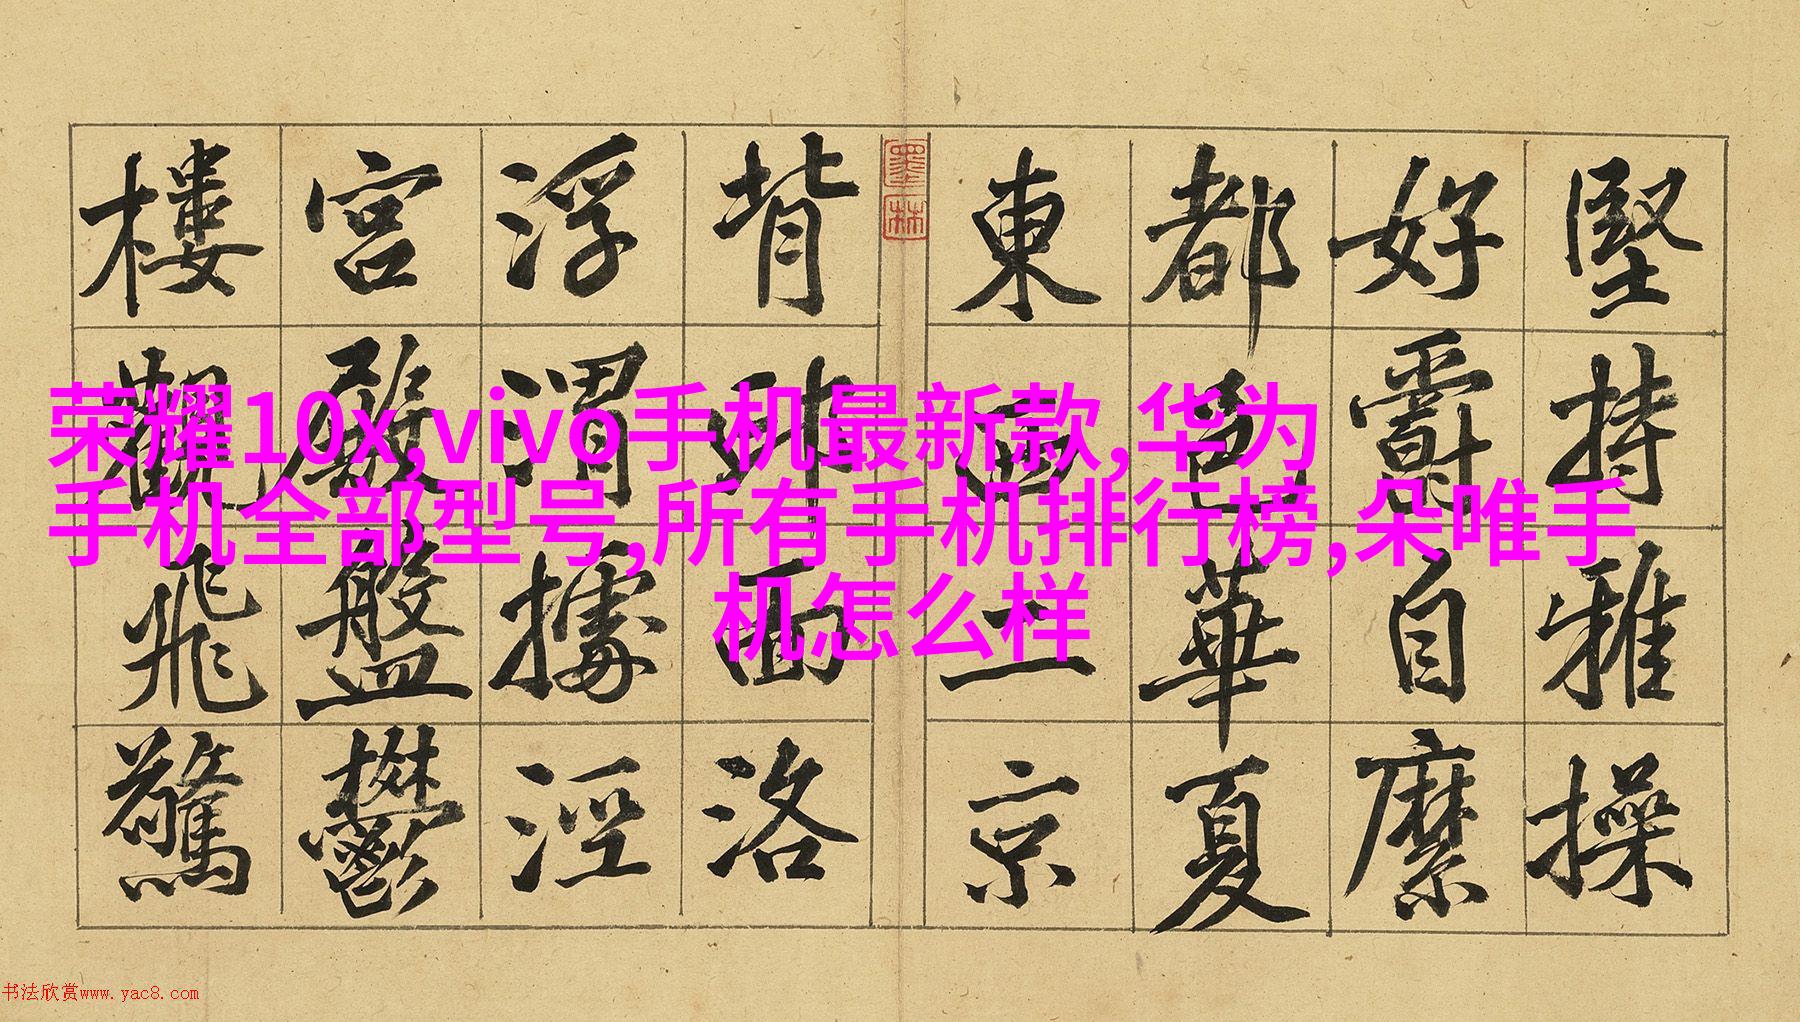 堅持雅操
好爵自縻
都邑華夏
東西二京
墨林
背邙面洛
浮渭據涇
宮殿盤鬱
樓觀飛驚
荣耀10x,vivo手机最新款,华为
手机全部型号,所有手机排行榜,朵唯手
机怎么样
书法欣赏www.yac8.com